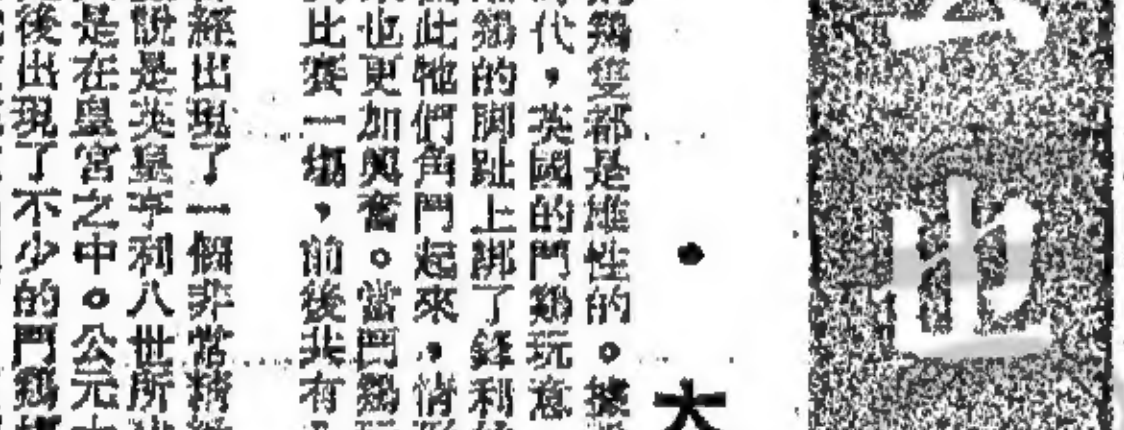 世
大
鷄隻都是雄性的。據
代，英國的鬥鷄玩意
的脚趾上綁了鋒利
此牠們角鬥起來，情
也更加興奮。當鬥鷄
比賽一場，前後共有
經出現了一個非常精
說是英皇亨利八世所
是在皇宮之中。公元
後出現了不少的鬥鷄